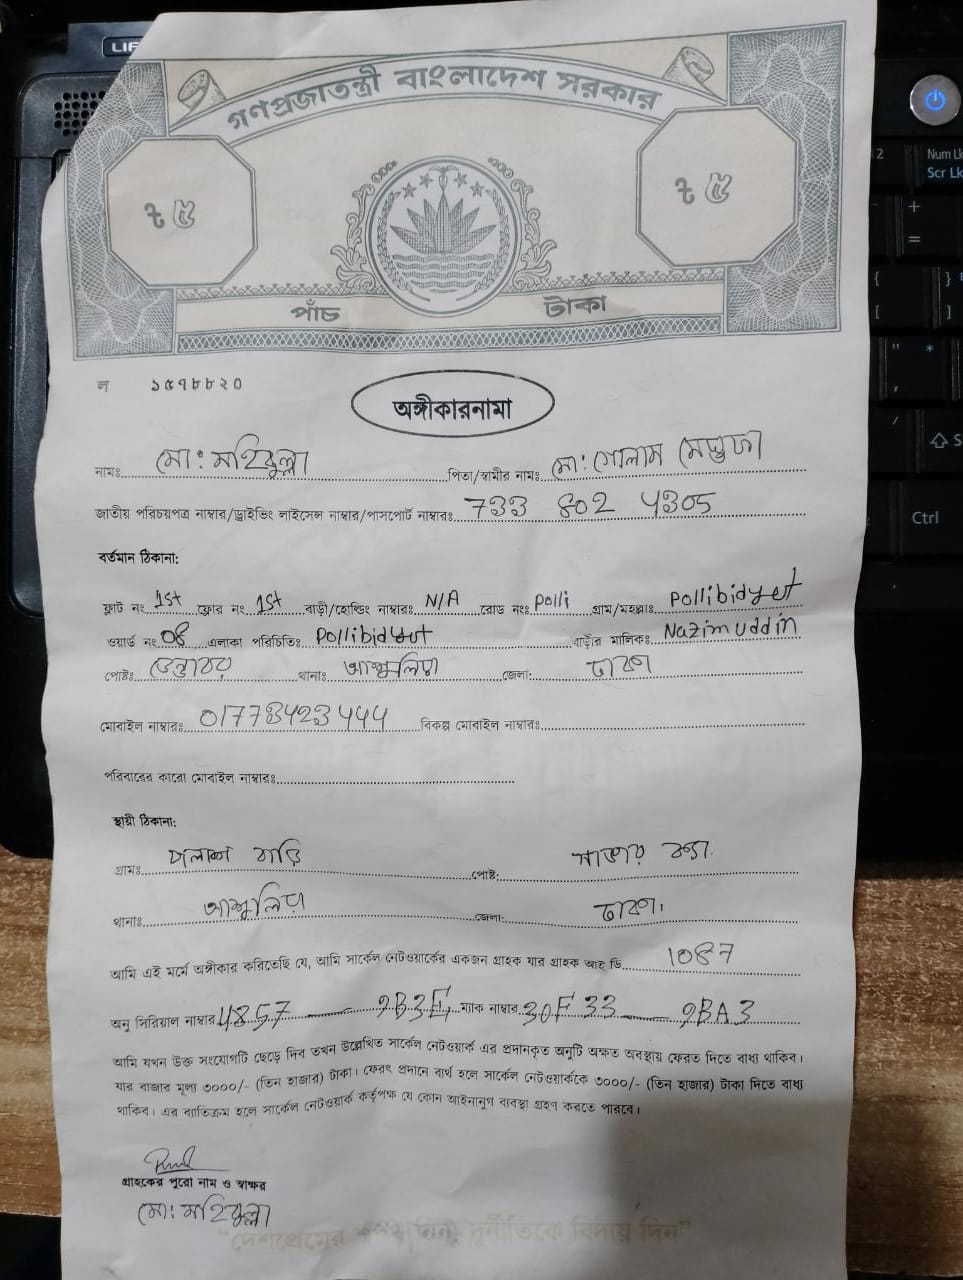 LIF
গণপ্রজাতন্ত্রী বাংলাদেশ সরকার
৳ ৫
৳ ৫
পাঁচ টাকা
ল ১৫৭৮৮২০
অঙ্গীকারনামা
নামঃ মো: মহিবুল্লা পিতা/স্বামীর নামঃ মো: গোলাম মোস্তফা
জাতীয় পরিচয়পত্র নাম্বার/ড্রাইভিং লাইসেন্স নাম্বার/পাসপোর্ট নাম্বারঃ 733 802 4305
বর্তমান ঠিকানা:
ফ্লাট নং 1st ফ্লোর নং 1st বাড়ী/হোল্ডিং নাম্বারঃ N/A রোড নংঃ Polli গ্রাম/মহল্লাঃ Pollibidyet
ওয়ার্ড নং 08 এলাকা পরিচিতিঃ Pollibidyut বাড়ীর মালিকঃ Nazimuddin
পোষ্টঃ থানাঃ আশুলিয়া জেলা: ঢাকা
মোবাইল নাম্বারঃ 01773423444 বিকল্প মোবাইল নাম্বারঃ
পরিবারের কারো মোবাইল নাম্বারঃ
স্থায়ী ঠিকানা:
গ্রামঃ পলাশ বাড়ি পোষ্ট:
থানাঃ আশুলিয়া জেলা: ঢাকা।
আমি এই মর্মে অঙ্গীকার করিতেছি যে, আমি সার্কেল নেটওয়ার্কের একজন গ্রাহক যার গ্রাহক আই ডি 1087
অনু সিরিয়াল নাম্বার 4857 — 9B3E ম্যাক নাম্বার 30F 33 — 9BA3
আমি যখন উক্ত সংযোগটি ছেড়ে দিব তখন উল্লেখিত সার্কেল নেটওয়ার্ক এর প্রদানকৃত অনুটি অক্ষত অবস্থায় ফেরত দিতে বাধ্য থাকিব।
যার বাজার মূল্য ৩০০০/- (তিন হাজার) টাকা। ফেরৎ প্রদানে ব্যর্থ হলে সার্কেল নেটওয়ার্ককে ৩০০০/- (তিন হাজার) টাকা দিতে বাধ্য
থাকিব। এর ব্যতিক্রম হলে সার্কেল নেটওয়ার্ক কর্তৃপক্ষ যে কোন আইনানুগ ব্যবস্থা গ্রহণ করতে পারবে।
গ্রাহকের পুরো নাম ও স্বাক্ষর
মো: মহিবুল্লা
"দেশপ্রেমের শপথ নিন, দুর্নীতিকে বিদায় দিন"
Num Lk
Scr Lk
Ctrl